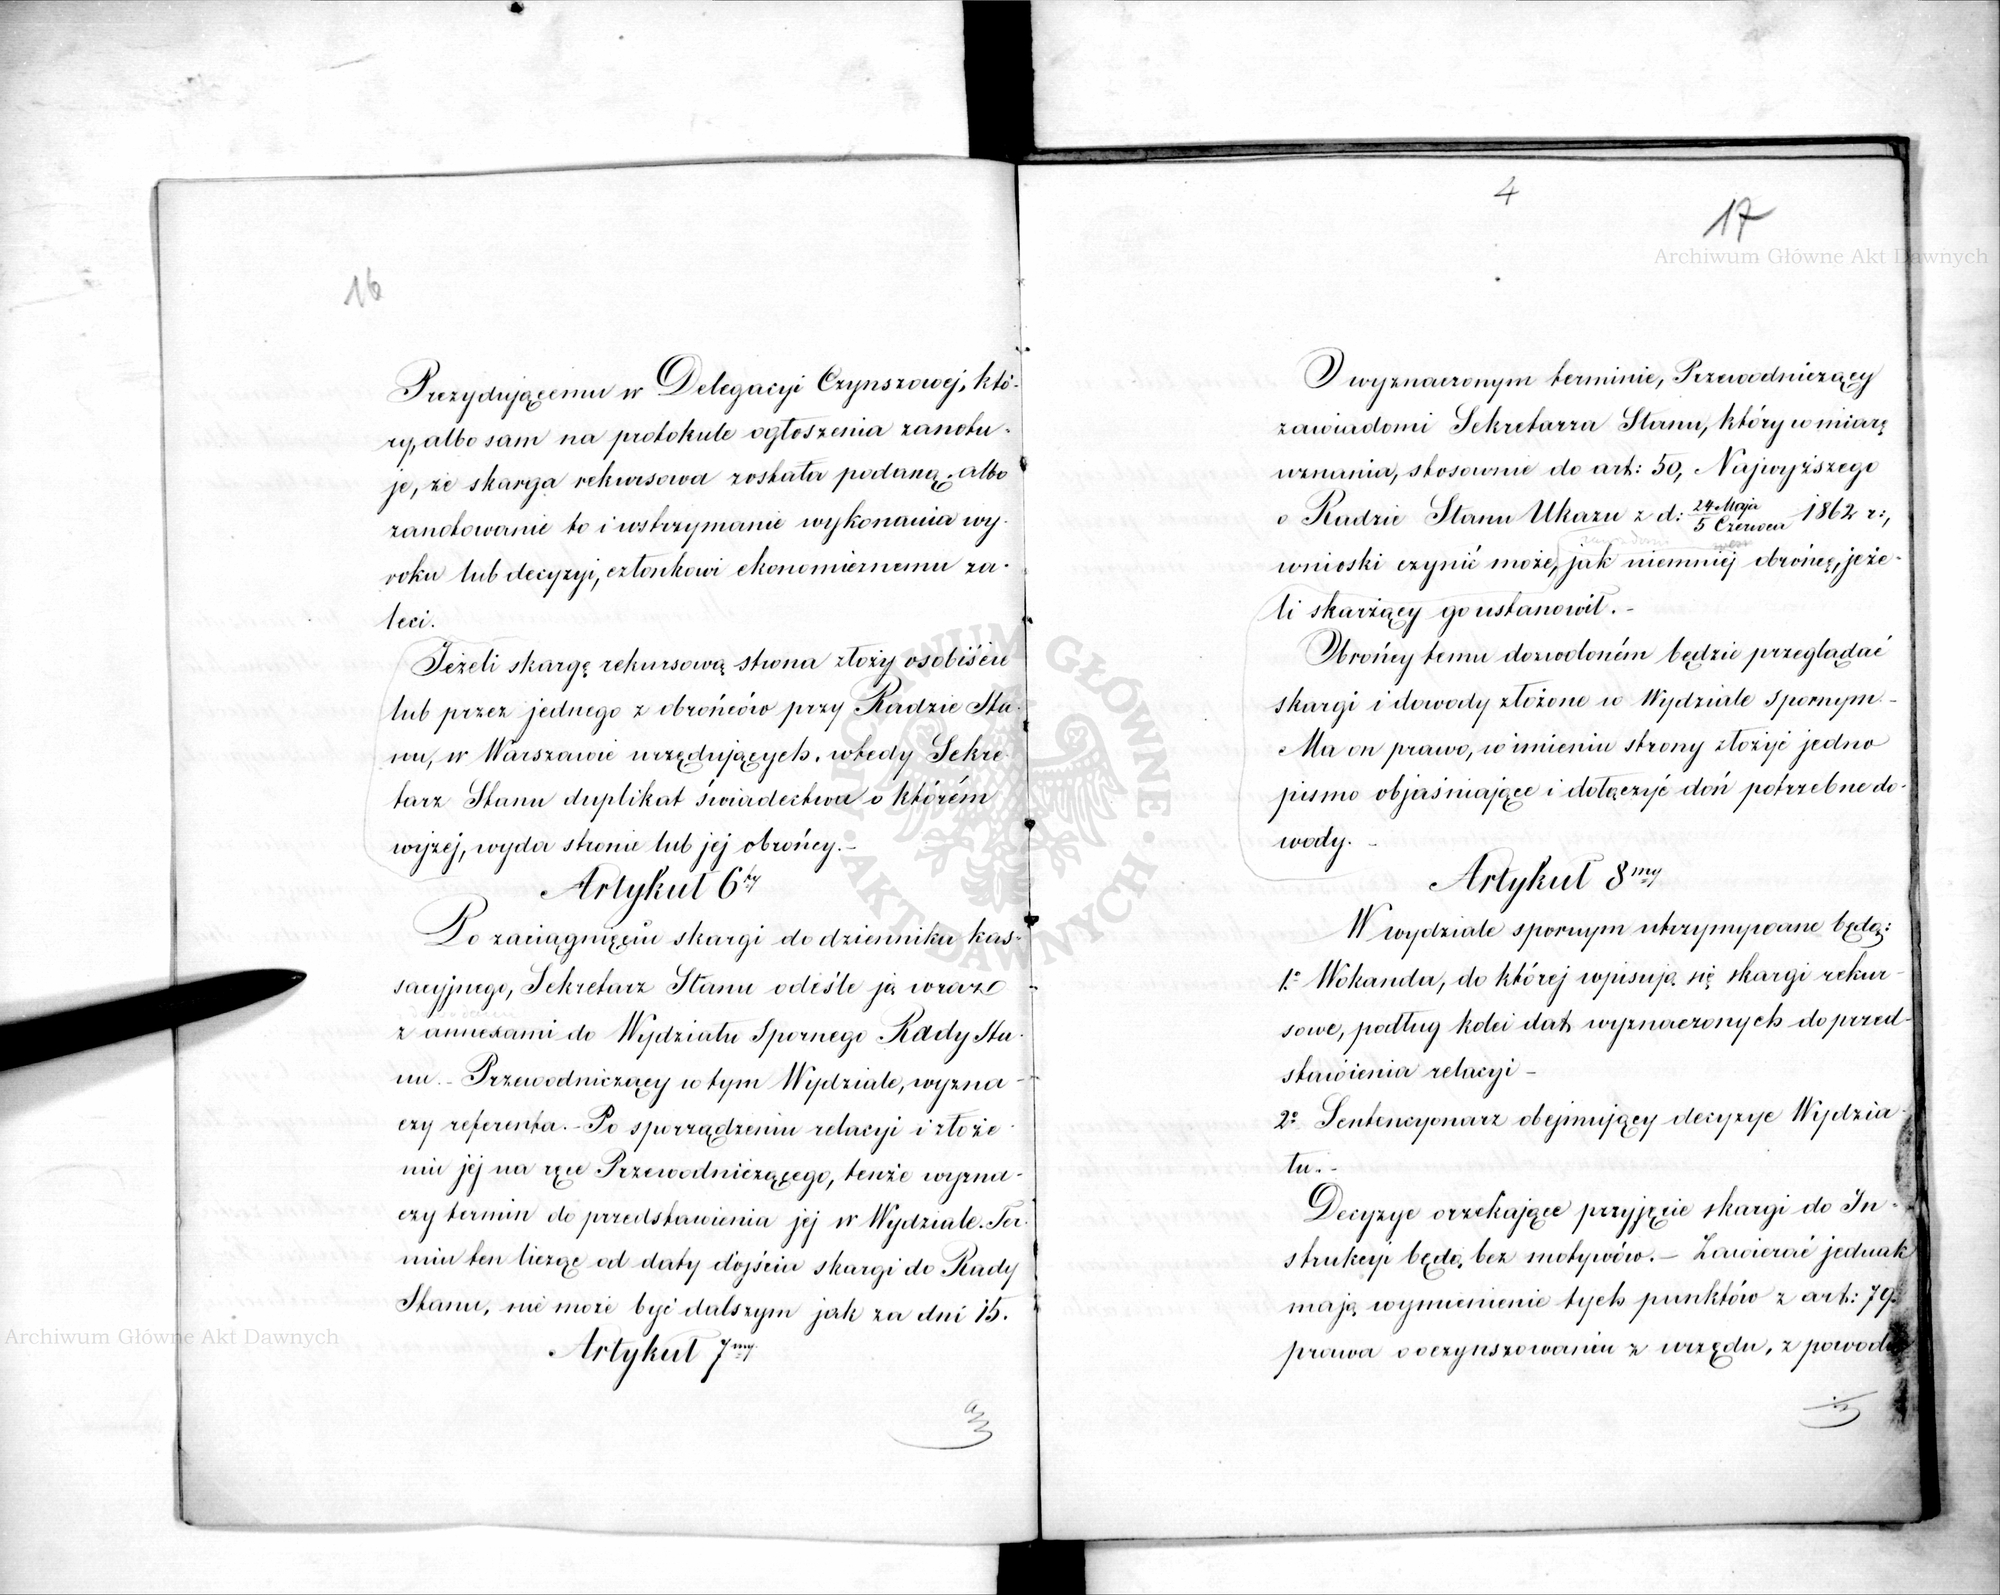 16
Prezydującemu w Delegacyi Czynszowej, któ-
ry, albo sam na protokule ogłoszenia zanotu-
je, że skarga rekursowa została podaną, albo
zanotowanie to i wstrzymanie wykonania wy-
roku lub decyzyi, członkowi ekonomicznemu za-
leci.
Jeżeli skargę rekursową strona złoży osobiście
lub przez jednego z obrońców przy Radzie Sta-
nu, w Warszawie urzędujących, wtedy Sekre-
tarz Stanu duplikat świadectwa o którém
wyżej, wyda stronie lub jej obrońcy.-
Artykuł 6ty
Po zaciągnięciu skargi do dzienniku kas-
sacyjnego, Sekretarz Stanu odeśle ją wraz
z annexami do Wydziału Spornego Rady Sta-
nu.- Przewodniczący w tym Wydziale, wyzna-
czy referenta.- Po sporządzeniu relacyi i złoże-
niu jej na ręce Przewodniczącego, tenże wyzna-
czy termin do przedstawienia jej w Wydziale. Ter-
min ten licząc od daty dojścia skargi do Rady
Stanu, nie może być dalszym jak za dni 15.
Artykuł 7my
4
17
O wyznaczonym terminie, Przewodniczący
zawiadomi Sekretarza Stanu, który w miarę
uznania, stosownie do art: 50, Najwyższego
o Radzie Stanu Ukazu z d: 24 Maja / 5 Czerwca 1862 r:,
wnioski czynić może, jak niemniej obrońcę, jeże-
li skarżący go ustanowił.-
Obrońcy temu dozwoloném będzie przeglądać
skargi i dowody złożone w Wydziale Spornym.-
Ma on prawo, w imieniu strony złożyć jedno
pismo objaśniające i dołączyć doń potrzebne do-
wody.-
Artykuł 8my
W wydziale spornym utrzymywane będą:
1o Wokanda, do której wpisują się skargi rekur-
sowe, podług kolei dat wyznaczonych do przed-
stawienia relacyi-
2o Sentencyonarz obejmujący decyzye Wydzia-
łu.-
Decyzye orzekające przyjęcie skargi do In-
strukcyi będą bez motywów.- Zawierać jednak
mają wymienienie tych punktów z art: 79
prawa o oczynszowaniu z urzędu, z powodu
Archiwum Główne Akt Dawnych
Archiwum Główne Akt Dawnych
ARCHIWUM GŁÓWNE AKT DAWNYCH